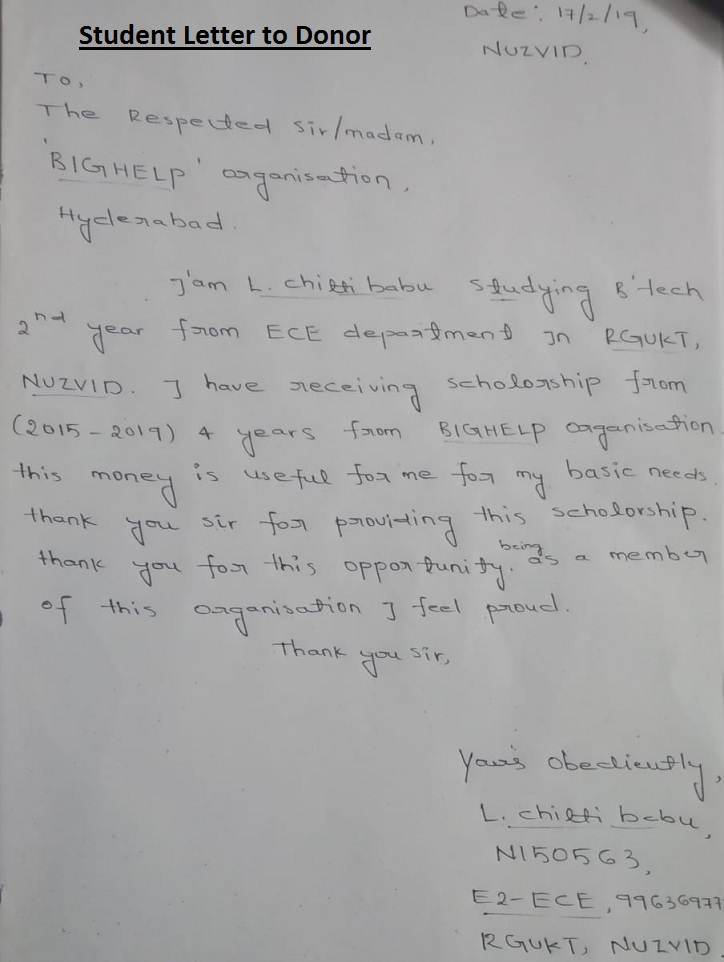 Date: 17/2/19,
Student Letter to Donor
NUZVID.
To,
The Respected Sir/madam,
'BIGHELP' organisation,
Hyderabad.
I'am L. chitti babu studying B'tech
2nd year from ECE department In RGUKT,
NUZVID. I have receiving scholorship from
(2015-2019) 4 years from BIGHELP organisation
this money is useful for me for my basic needs.
thank you sir for providing this scholorship.
thank you for this opportunity. being as a member
of this organisation I feel proud.
Thank you sir,
Your's obediently,
L. chitti babu,
N150563,
E2-ECE, 99636977
RGUKT, NUZVID